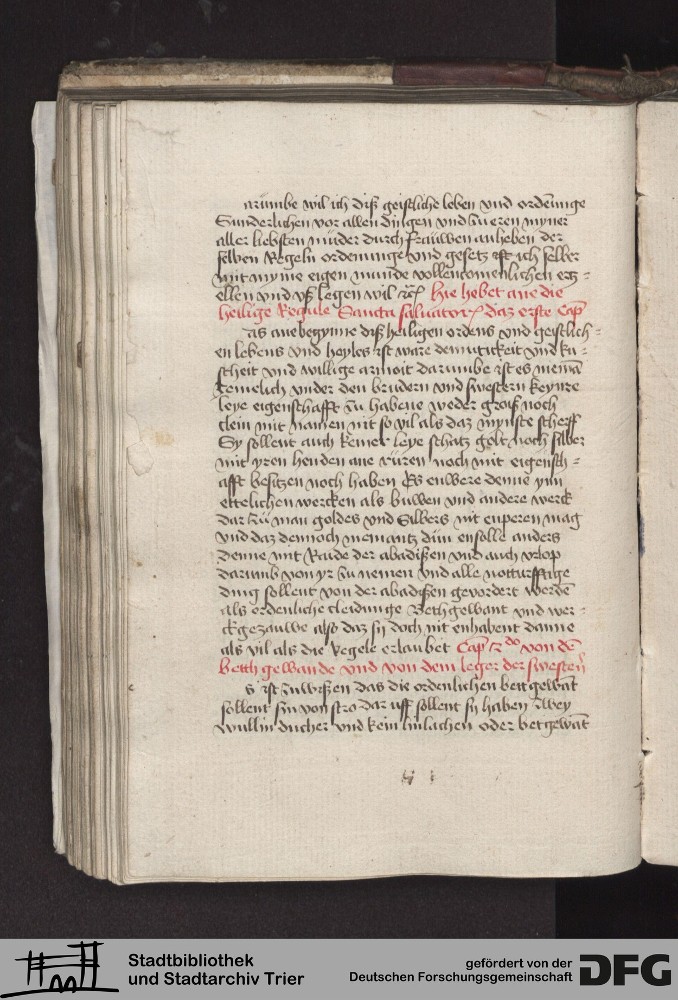 arumbe wil ich diß geistliche leben vnd ordenunge
Sunderlichen vor allen dingen vnd zu eren myner
aller liebsten muder durch frauwen anheben der
selben Regeln ordenunge vnd gesetz ist ich selber
mit myme eigen munde vollenkomenlichen ertz=
ellen vnd vß legen wil Hie hebet ane die
heilige Regule Sancta saluator daz erste Cap
as anebegynne diß heiligen ordens vnd geistlich=
en lebens vnd heyles ist ware demutickeit vnd ku=
scheit vnd willige armoit darumbe ist es nema
zemelich vnder den brudern vnd swestern keynre
leye eigenschafft zu habene weder groiß noch
clein mit namen nit so vil als daz mynste scherff
Sy sollent auch keiner leye schatz gelt noch silber
mit yren henden ane ruren noch mit eigensch=
afft besitzen noch haben Es enwere denne ynn
ettelichen wercken als buwen vnd andere werck
dar zu man goldes vnd Silbers nit enperen mag
vnd daz dennoch nemantz dun ensolle anders
denne mit Raide der abadißen vnd auch vrlop
darumb von yr zu nemen vnd alle notturfftige
ding sollent von der abadißen gevordert werden
als ordenliche cleidunge Bethgewant vnd wer=
ckgezauwe also daz sy doch nit enhabent danne
als vil als die Regele erlaubet Cap von den
betthgewande vnd von dem leger der swestern
s ist zu wißen das die ordenlichen bettgewat
sollent sin von stro dar uff sollent sy haben zwey
wullin ducher vnd kein linlachen oder betgewat
Stadtbibliothek
und Stadtarchiv Trier
gefördert von der
Deutschen Forschungsgemeinschaft
DFG